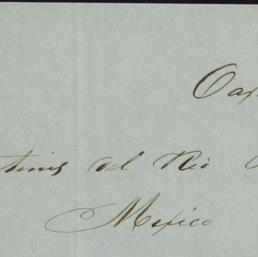 Oax
tinez del Rio
Mexico